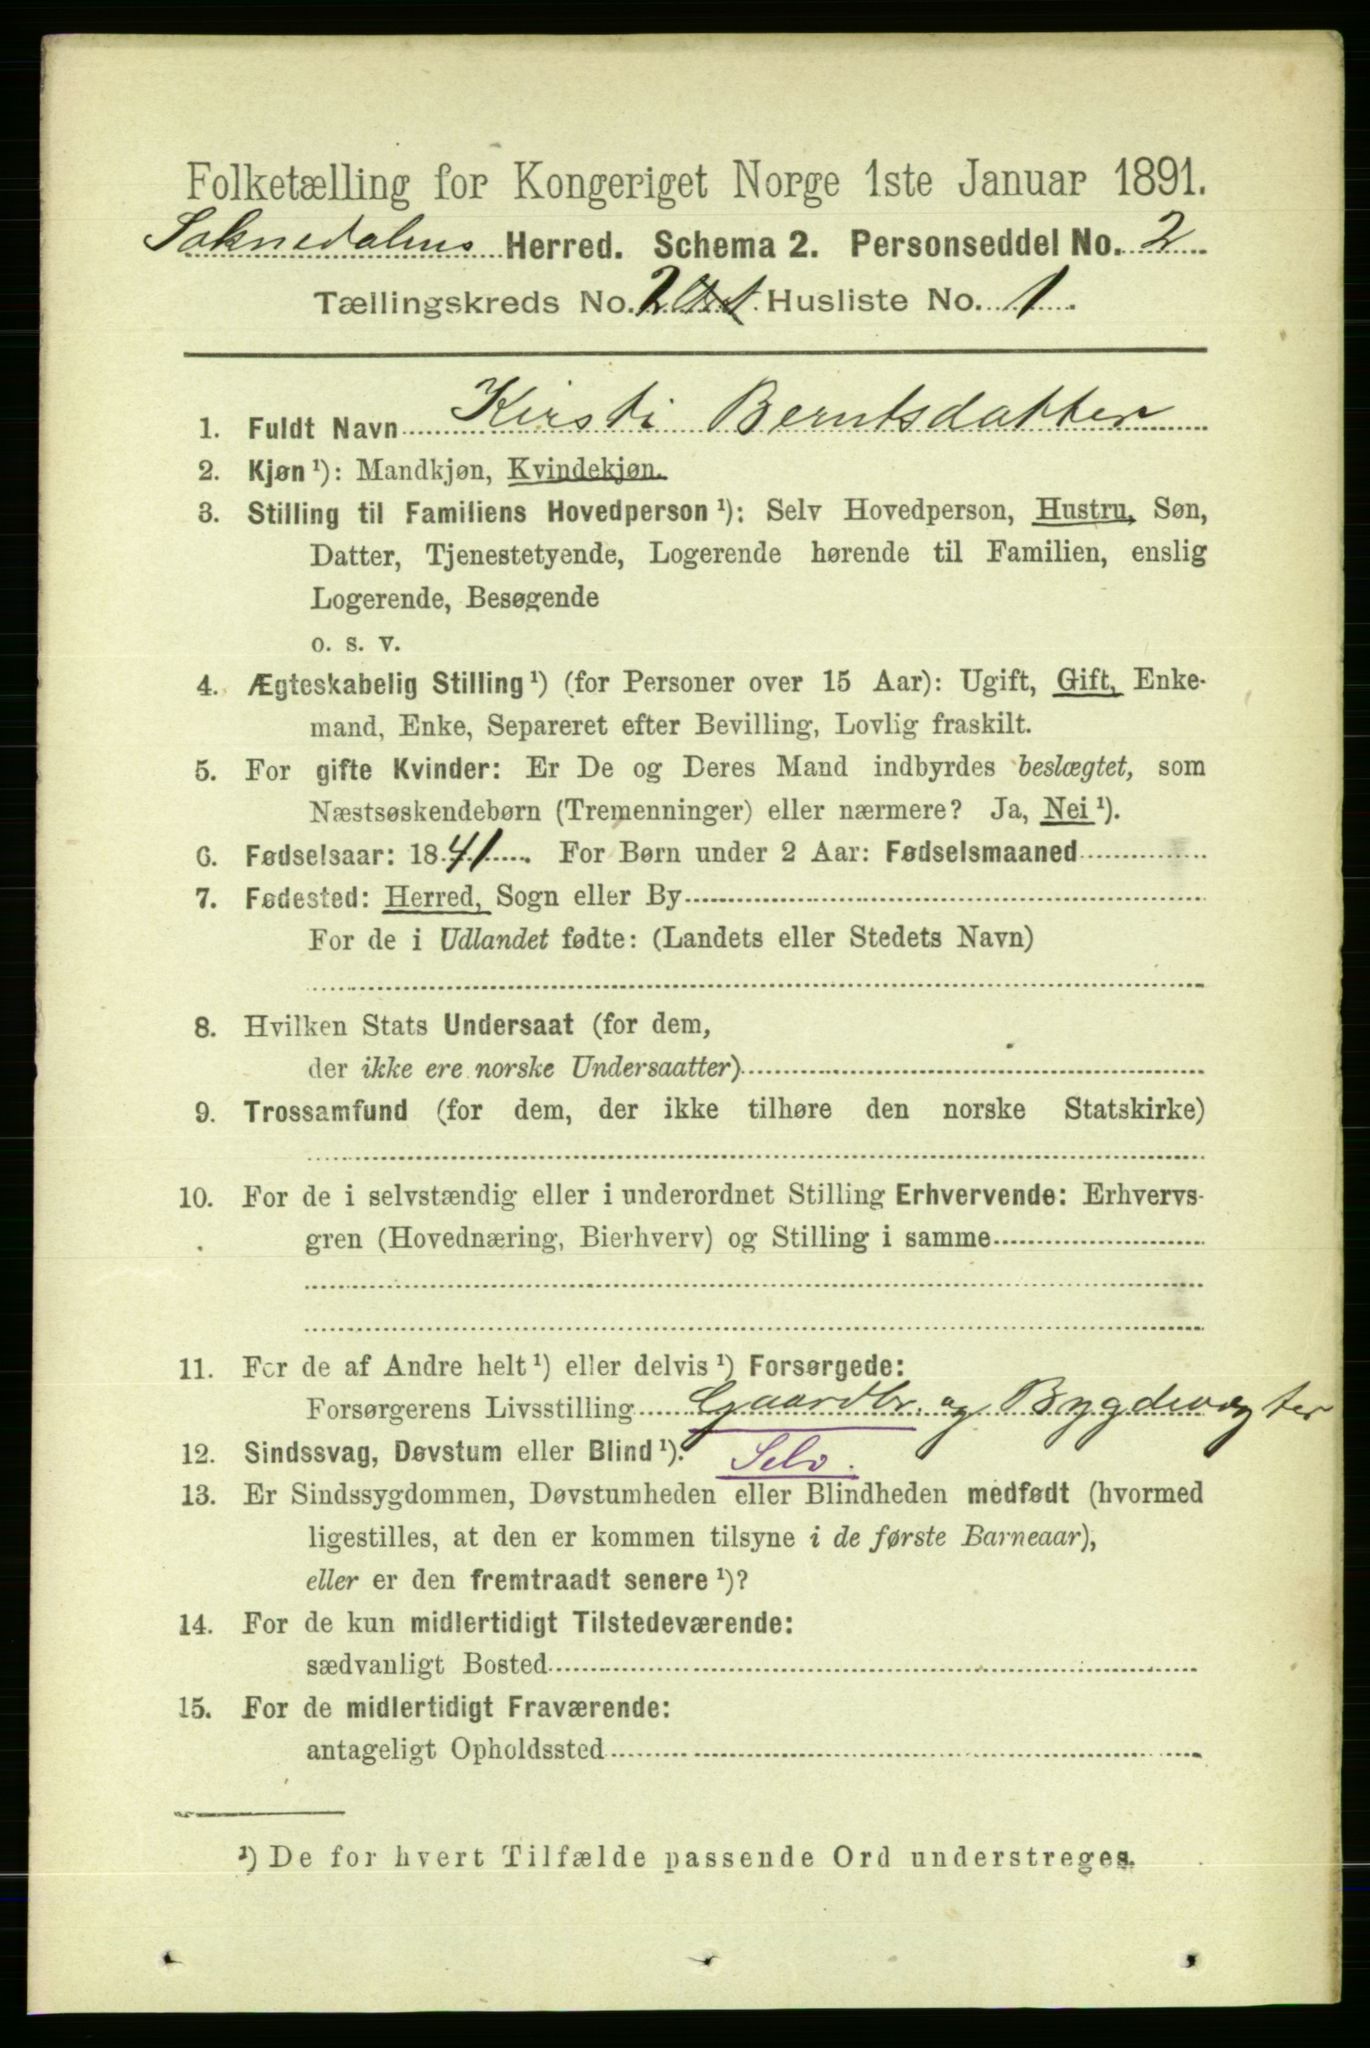 Folketælling for Kongeriget Norge 1ste Januar 1891.
Soknedalens Herred. Schema 2. Personseddel No. 2
Tællingskreds No. 2 Husliste No. 1
1. Fuldt Navn Kirsti Berntsdatter
2. Kjøn ¹): Mandkjøn, Kvindekjøn.
3. Stilling til Familiens Hovedperson ¹): Selv Hovedperson, Hustru, Søn,
Datter, Tjenestetyende, Logerende hørende til Familien, enslig
Logerende, Besøgende
o. s. v.
4. Ægteskabelig Stilling ¹) (for Personer over 15 Aar): Ugift, Gift, Enke-
mand, Enke, Separeret efter Bevilling, Lovlig fraskilt.
5. For gifte Kvinder: Er De og Deres Mand indbyrdes beslægtet, som
Næstsøskendebørn (Tremenninger) eller nærmere? Ja, Nei ¹).
6. Fødselsaar: 1841. For Børn under 2 Aar: Fødselsmaaned
7. Fødested: Herred, Sogn eller By
For de i Udlandet fødte: (Landets eller Stedets Navn)
8. Hvilken Stats Undersaat (for dem,
der ikke ere norske Undersaatter)
9. Trossamfund (for dem, der ikke tilhøre den norske Statskirke)
10. For de i selvstændig eller i underordnet Stilling Erhvervende: Erhvervs-
gren (Hovednæring, Bierhverv) og Stilling i samme
11. For de af Andre helt ¹) eller delvis ¹) Forsørgede:
Forsørgerens Livsstilling Gaardbr. og Bygdevægter
12. Sindssvag, Døvstum eller Blind ¹). Selv.
13. Er Sindssygdommen, Døvstumheden eller Blindheden medfødt (hvormed
ligestilles, at den er kommen tilsyne i de første Barneaar),
eller er den fremtraadt senere ¹)?
14. For de kun midlertidigt Tilstedeværende:
sædvanligt Bosted
15. For de midlertidigt Fraværende:
antageligt Opholdssted
¹) De for hvert Tilfælde passende Ord understreges.